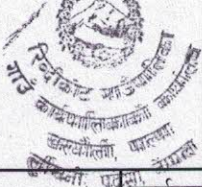 रिब्दीकोट गाउँपालिका
गाउँ कार्यपालिकाको कार्यालय
पाल्पा
लुम्बिनी प्रदेश, नेपाल